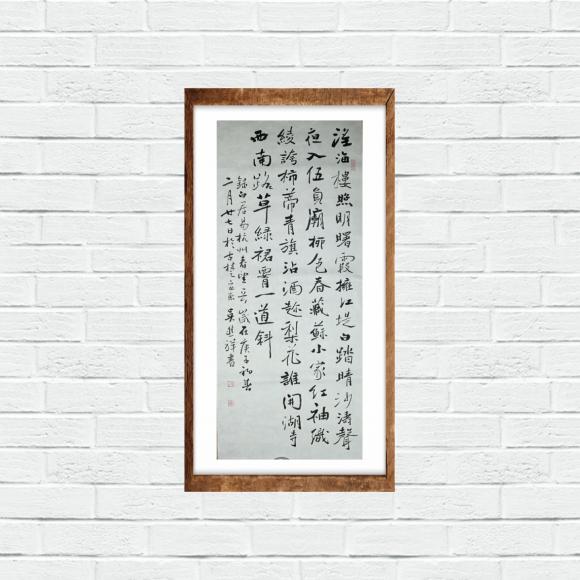 海樓照明曙霞擁江堤白踏晴沙濤聲
夜入伍員廟柳色春藏蘇小家紅袖織
綾誇柿蒂青旗沽酒趂梨花誰開湖寺
西南路草綠裙腰一道斜
錄白居易杭州春望 歲在庚子初春
二月廿七日於古楚 吳 祥書